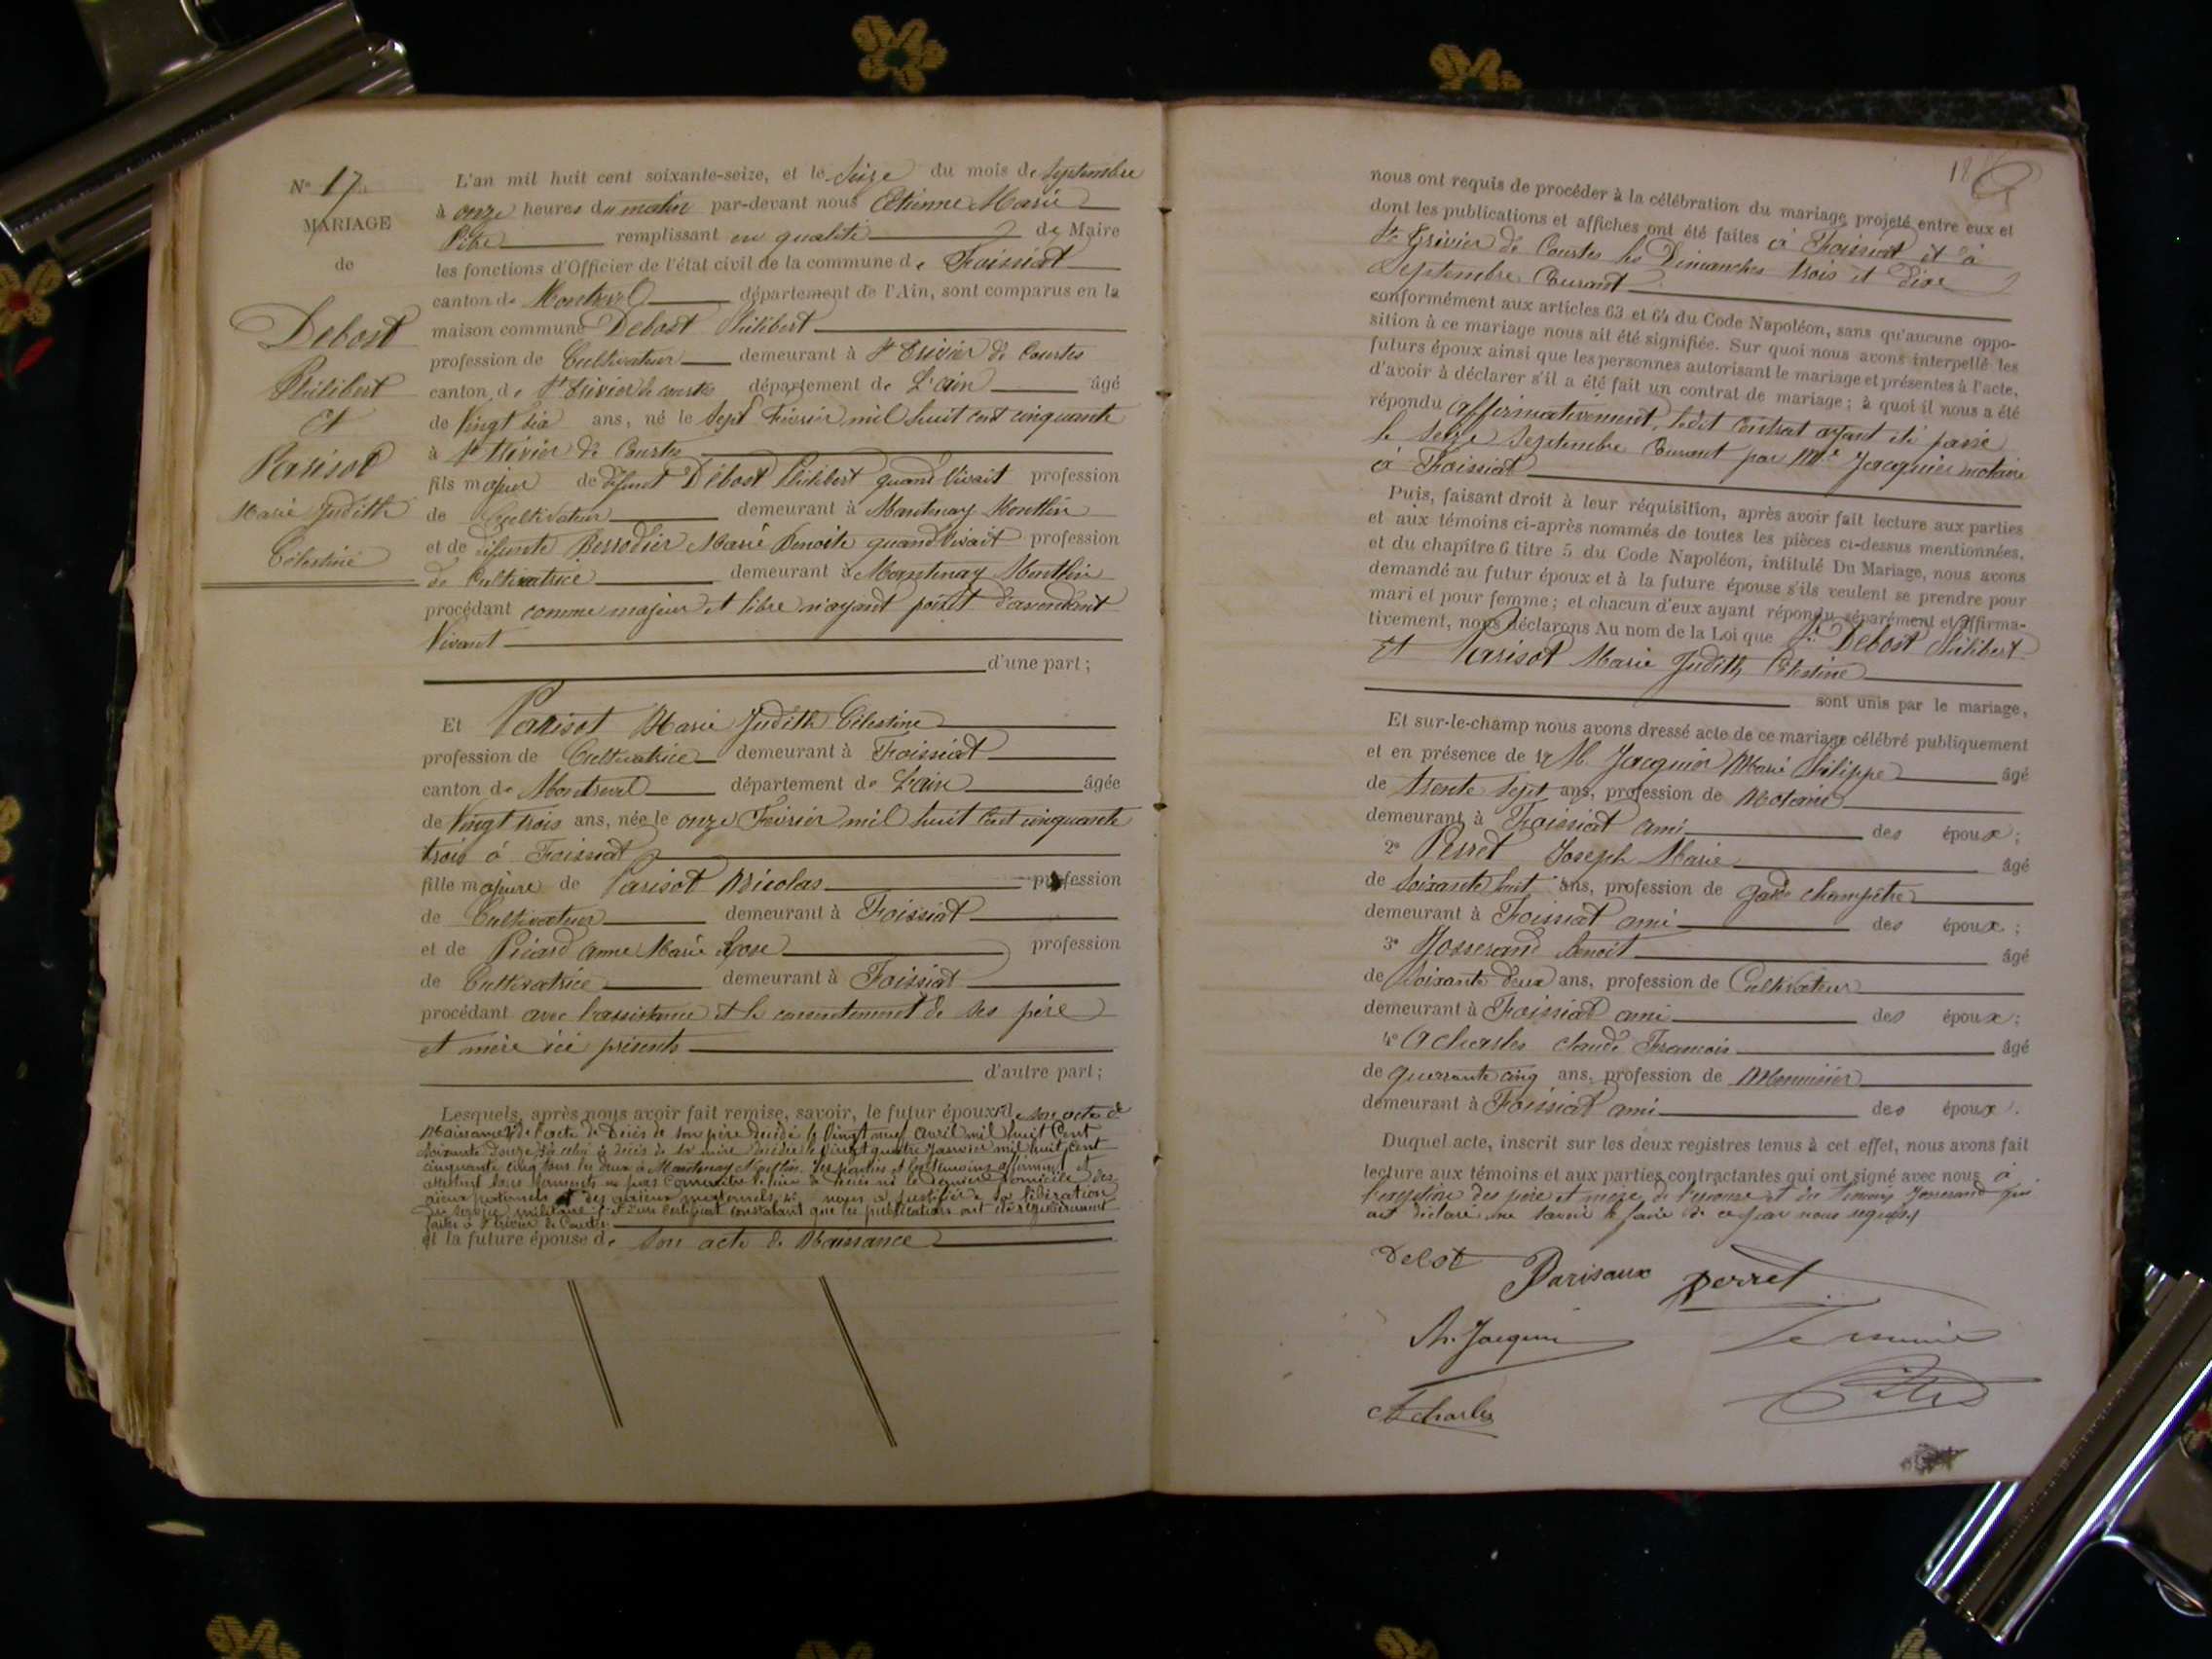 N° 17
MARIAGE
de
Debost
Philibert
Et
Parisot
Marie Judith
Célestine
L'an mil huit cent soixante-seize, et le Seize du mois de Septembre
à onze heures du matin par-devant nous Etienne Marie
Pitre remplissant en qualité de Maire
les fonctions d'Officier de l'état civil de la commune de Foissiat
canton de Montrevel département de l'Ain, sont comparus en la
maison commune Debost Philibert
profession de Cultivateur demeurant à St Trivier de Courtes
canton de St Trivier de courtes département de L'ain âgé
de Vingt six ans, né le Sept Février mil huit cent cinquante
à St Trivier de Courtes
fils majeur de défunt Débost Philibert quand Vivait profession
de Cultivateur demeurant à Mantenay Montlin
et de défunte Berrodier Marie Benoite quand Vivait profession
de Cultivatrice demeurant à Mantenay Montlin
procédant comme majeur et libre n'ayant point d'ascendant
Vivant
d'une part ;
Et Parisot Marie Judith Célestine
profession de Cultivatrice demeurant à Foissiat
canton de Montrevel département de L'ain âgée
de Vingt trois ans, née le onze Février mil huit Cent cinquante
trois à Foissiat
fille majeure de Parisot Nicolas profession
de Cultivateur demeurant à Foissiat
et de Picard Anne Marie Rose profession
de Cultivatrice demeurant à Foissiat
procédant avec l'assistance et le consentement de ses père
et mère ici présents
d'autre part ;
Lesquels, après nous avoir fait remise, savoir, le futur époux de son acte de
Naissance de l'acte de Décès de son père décédé le Vingt neuf avril mil huit Cent
soixante douze celui de décès de sa mère décédée le Vingt quatre Janvier mil huit cent
cinquante cinq tous les deux à Mantenay Montlin. Les parties et les témoins affirment et
attestent sous serments ne pas Connaitre le lieu de décès ni le dernier domicile des
aïeux paternels et des aïeux maternels, nous a justifié de sa libération
du service militaire et d'un certificat constatant que les publications ont été régulièrement
faites à St Trivier de Courtes
et la future épouse de son acte de Naissance
18
nous ont requis de procéder à la célébration du mariage projeté entre eux et
dont les publications et affiches ont été faites à Foissiat et à
St Trivier de Courtes les Dimanches trois et dix
Septembre Courant
conformément aux articles 63 et 64 du Code Napoléon, sans qu'aucune oppo-
sition à ce mariage nous ait été signifiée. Sur quoi nous avons interpellé les
futurs époux ainsi que les personnes autorisant le mariage et présentes à l'acte,
d'avoir à déclarer s'il a été fait un contrat de mariage ; à quoi il nous a été
répondu affirmativement, ledit Contrat ayant été passé
le Seize Septembre Courant par Me Jacquier notaire
à Foissiat
Puis, faisant droit à leur réquisition, après avoir fait lecture aux parties
et aux témoins ci-après nommés de toutes les pièces ci-dessus mentionnées,
et du chapitre 6 titre 5 du Code Napoléon, intitulé Du Mariage, nous avons
demandé au futur époux et à la future épouse s'ils veulent se prendre pour
mari et pour femme ; et chacun d'eux ayant répondu séparément et affirma-
tivement, nous déclarons Au nom de la Loi que Debost Philibert
Et Parisot Marie Judith Célestine
sont unis par le mariage,
Et sur-le-champ nous avons dressé acte de ce mariage célébré publiquement
et en présence de 1° M. Jacquier Marie Philippe âgé
de trente sept ans, profession de Notaire
demeurant à Foissiat ami des époux ;
2° Perret Joseph Marie âgé
de soixante huit ans, profession de garde champêtre
demeurant à Foissiat ami des époux ;
3° Josserand Benoit âgé
de Soixante deux ans, profession de Cultivateur
demeurant à Foissiat ami des époux ;
4° Acharles claude Francois âgé
de quarante cinq ans, profession de Menuisier
demeurant à Foissiat ami des époux.
Duquel acte, inscrit sur les deux registres tenus à cet effet, nous avons fait
lecture aux témoins et aux parties contractantes qui ont signé avec nous à
l'exeption des père et mère de l'épouse et du témoins Josserand qui
ont déclaré ne savoir le faire de ce par nous requis
Debst
Parisaux
perret
Ph. Jacquier
Le maire
Acharles
Pitre